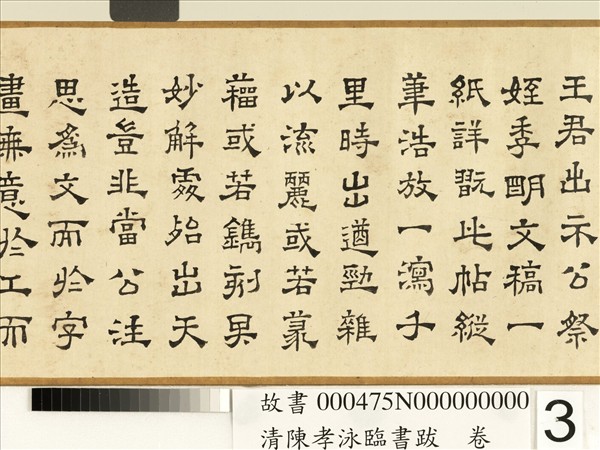 王君出示公祭
姪季明文稿一
紙詳翫此帖縱
筆浩放一瀉千
里時出遒勁雜
以流麗或若篆
籀或若鐫刻其
妙解處殆出天
造豈非當公注
思為文而於字
畫無意於工而
故書 000475N000000000
清陳孝泳臨書跋 卷
3